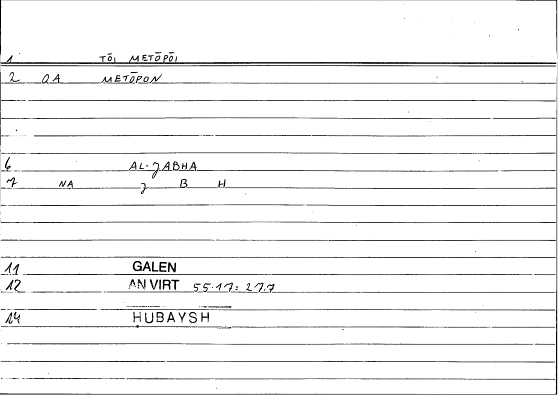 1 TŌI METŌPŌI
2 QA METŌPON
6 AL-JABHA
7 NA J B H
11 GALEN
12 AN VIRT 55.17: 27.7
14 HUBAYSH